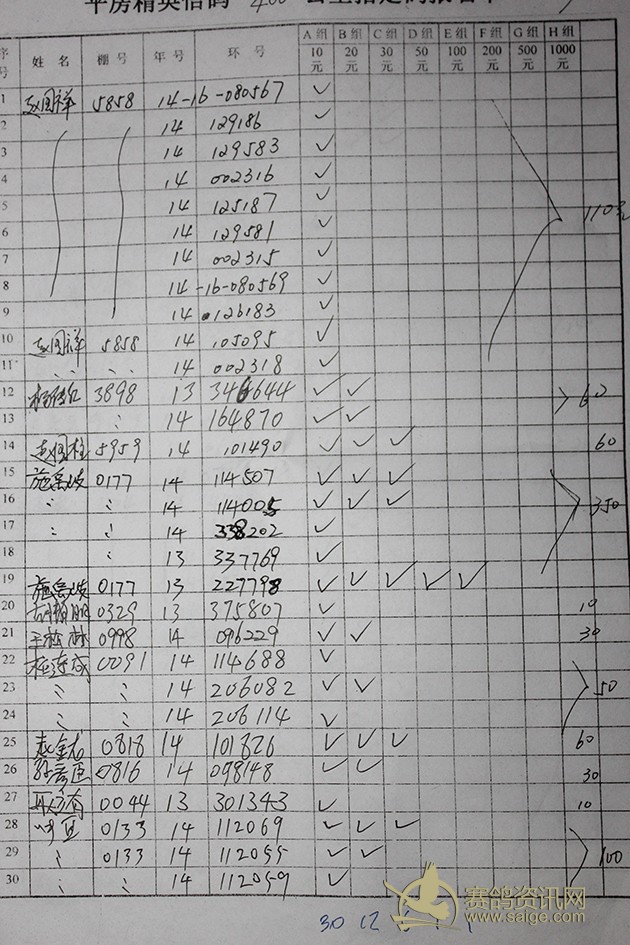 序号 姓名 棚号 年号 环号 A组10元 B组20元 C组30元 D组50元 E组100元 F组200元 G组500元 H组1000元
1 赵国祥 5858 14-16-080567 ✓
2 14 129186 ✓
3 14 129583 ✓
4 14 002316 ✓
5 14 125187 ✓
6 14 129581 ✓ 110元
7 14 002315 ✓
8 14-16-080569 ✓
9 14 126183 ✓
10 赵国祥 5858 14 105095 ✓
11 14 002318 ✓
12 3898 13 346644 ✓ ✓ 60
13 14 164870 ✓ ✓
14 赵国柱 5959 14 101490 ✓ ✓ ✓ 60
15 0177 14 114507 ✓ ✓ ✓
16 14 114005 ✓ ✓ ✓ 350
17 14 338202 ✓
18 13 337769 ✓
19 0177 13 227798 ✓ ✓ ✓ ✓ ✓
20 0329 13 375807 ✓ 10
21 0998 14 096229 ✓ ✓ 30
22 0091 14 114688 ✓
23 14 206082 ✓ ✓ 50
24 14 206114 ✓
25 0818 14 101826 ✓ ✓ ✓ 60
26 0816 14 098148 ✓ ✓ 30
27 0044 13 301343 ✓ 10
28 0133 14 112069 ✓ ✓ ✓
29 0133 14 112055 ✓ ✓ 100
30 14 112059 ✓
30 12
赛鸽资讯网
www.saige.com